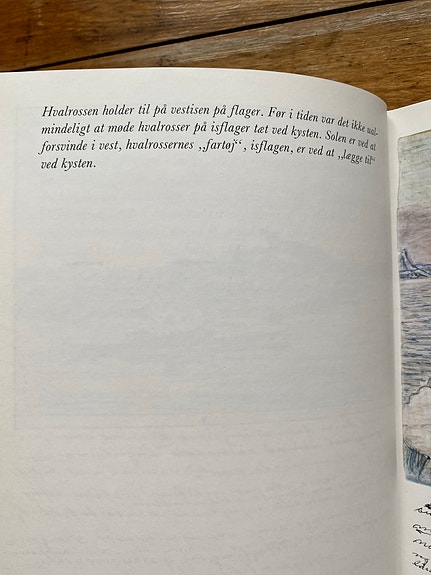 Hvalrossen holder til på vestisen på flager. Før i tiden var det ikke ual-
mindeligt at møde hvalrosser på isflager tæt ved kysten. Solen er ved at
forsvinde i vest, hvalrossernes „fartøj“, isflagen, er ved at „lægge til“
ved kysten.